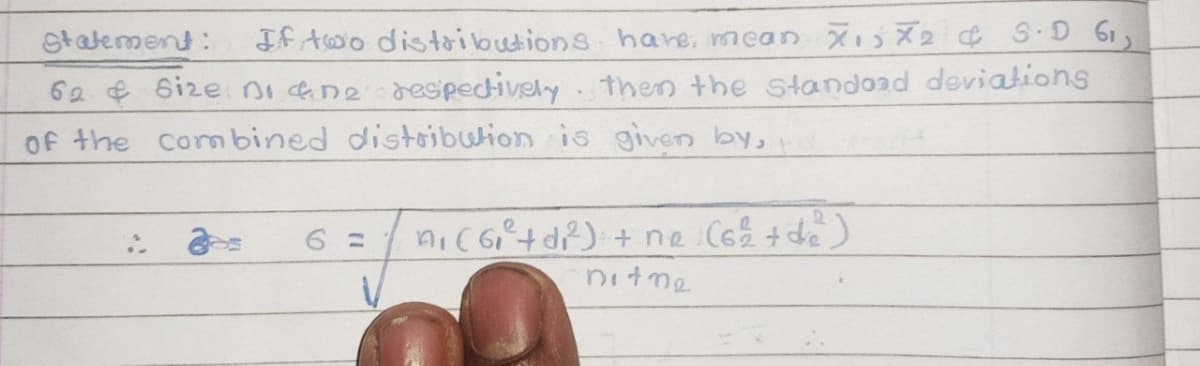 Statement: If two distributions have mean x̄1, x̄2 & S.D σ1,
σ2 & Size n1 & n2 respectively. then the standard deviations
of the combined distribution is given by,
∴ σ = √ n1(σ1²+d1²) + n2 (σ2²+d2²)
n1+n2